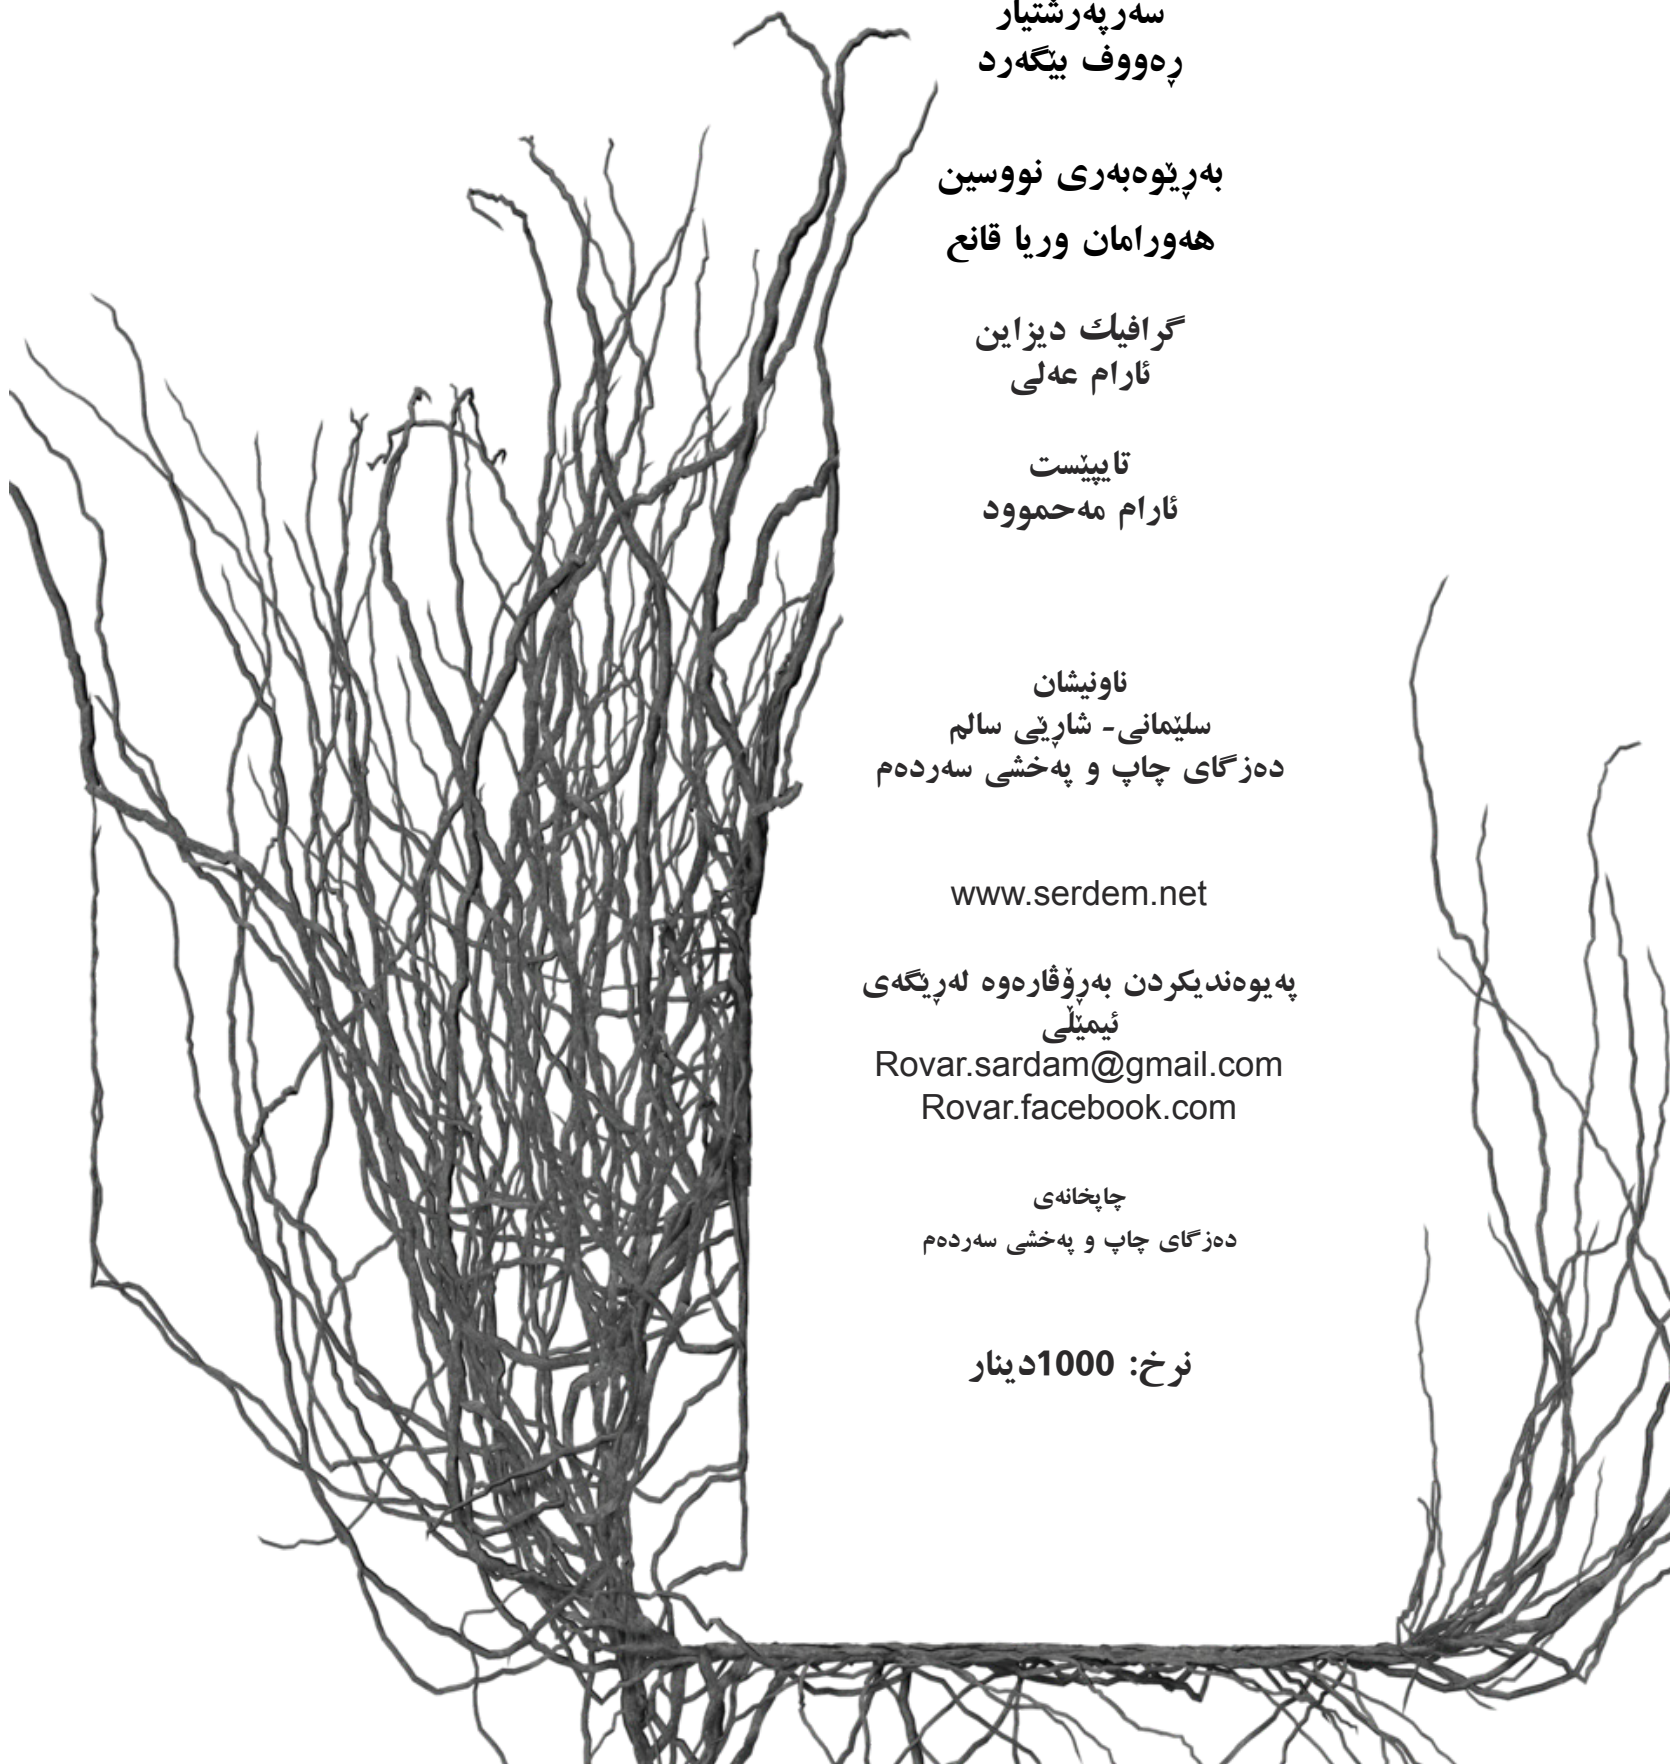 سەرپەرشتیار
ڕەووف بێگەرد
بەڕێوەبەری نووسین
هەورامان وریا قانع
گرافیك دیزاین
ئارام عەلی
تایپێست
ئارام مەحموود
ناونیشان
سلێمانی- شاڕێی سالم
دەزگای چاپ و پەخشی سەردەم
www.serdem.net
پەیوەندیکردن بەڕۆڤارەوە لەڕێگەی
ئیمێڵی
Rovar.sardam@gmail.com
Rovar.facebook.com
چاپخانەی
دەزگای چاپ و پەخشی سەردەم
نرخ: 1000دینار